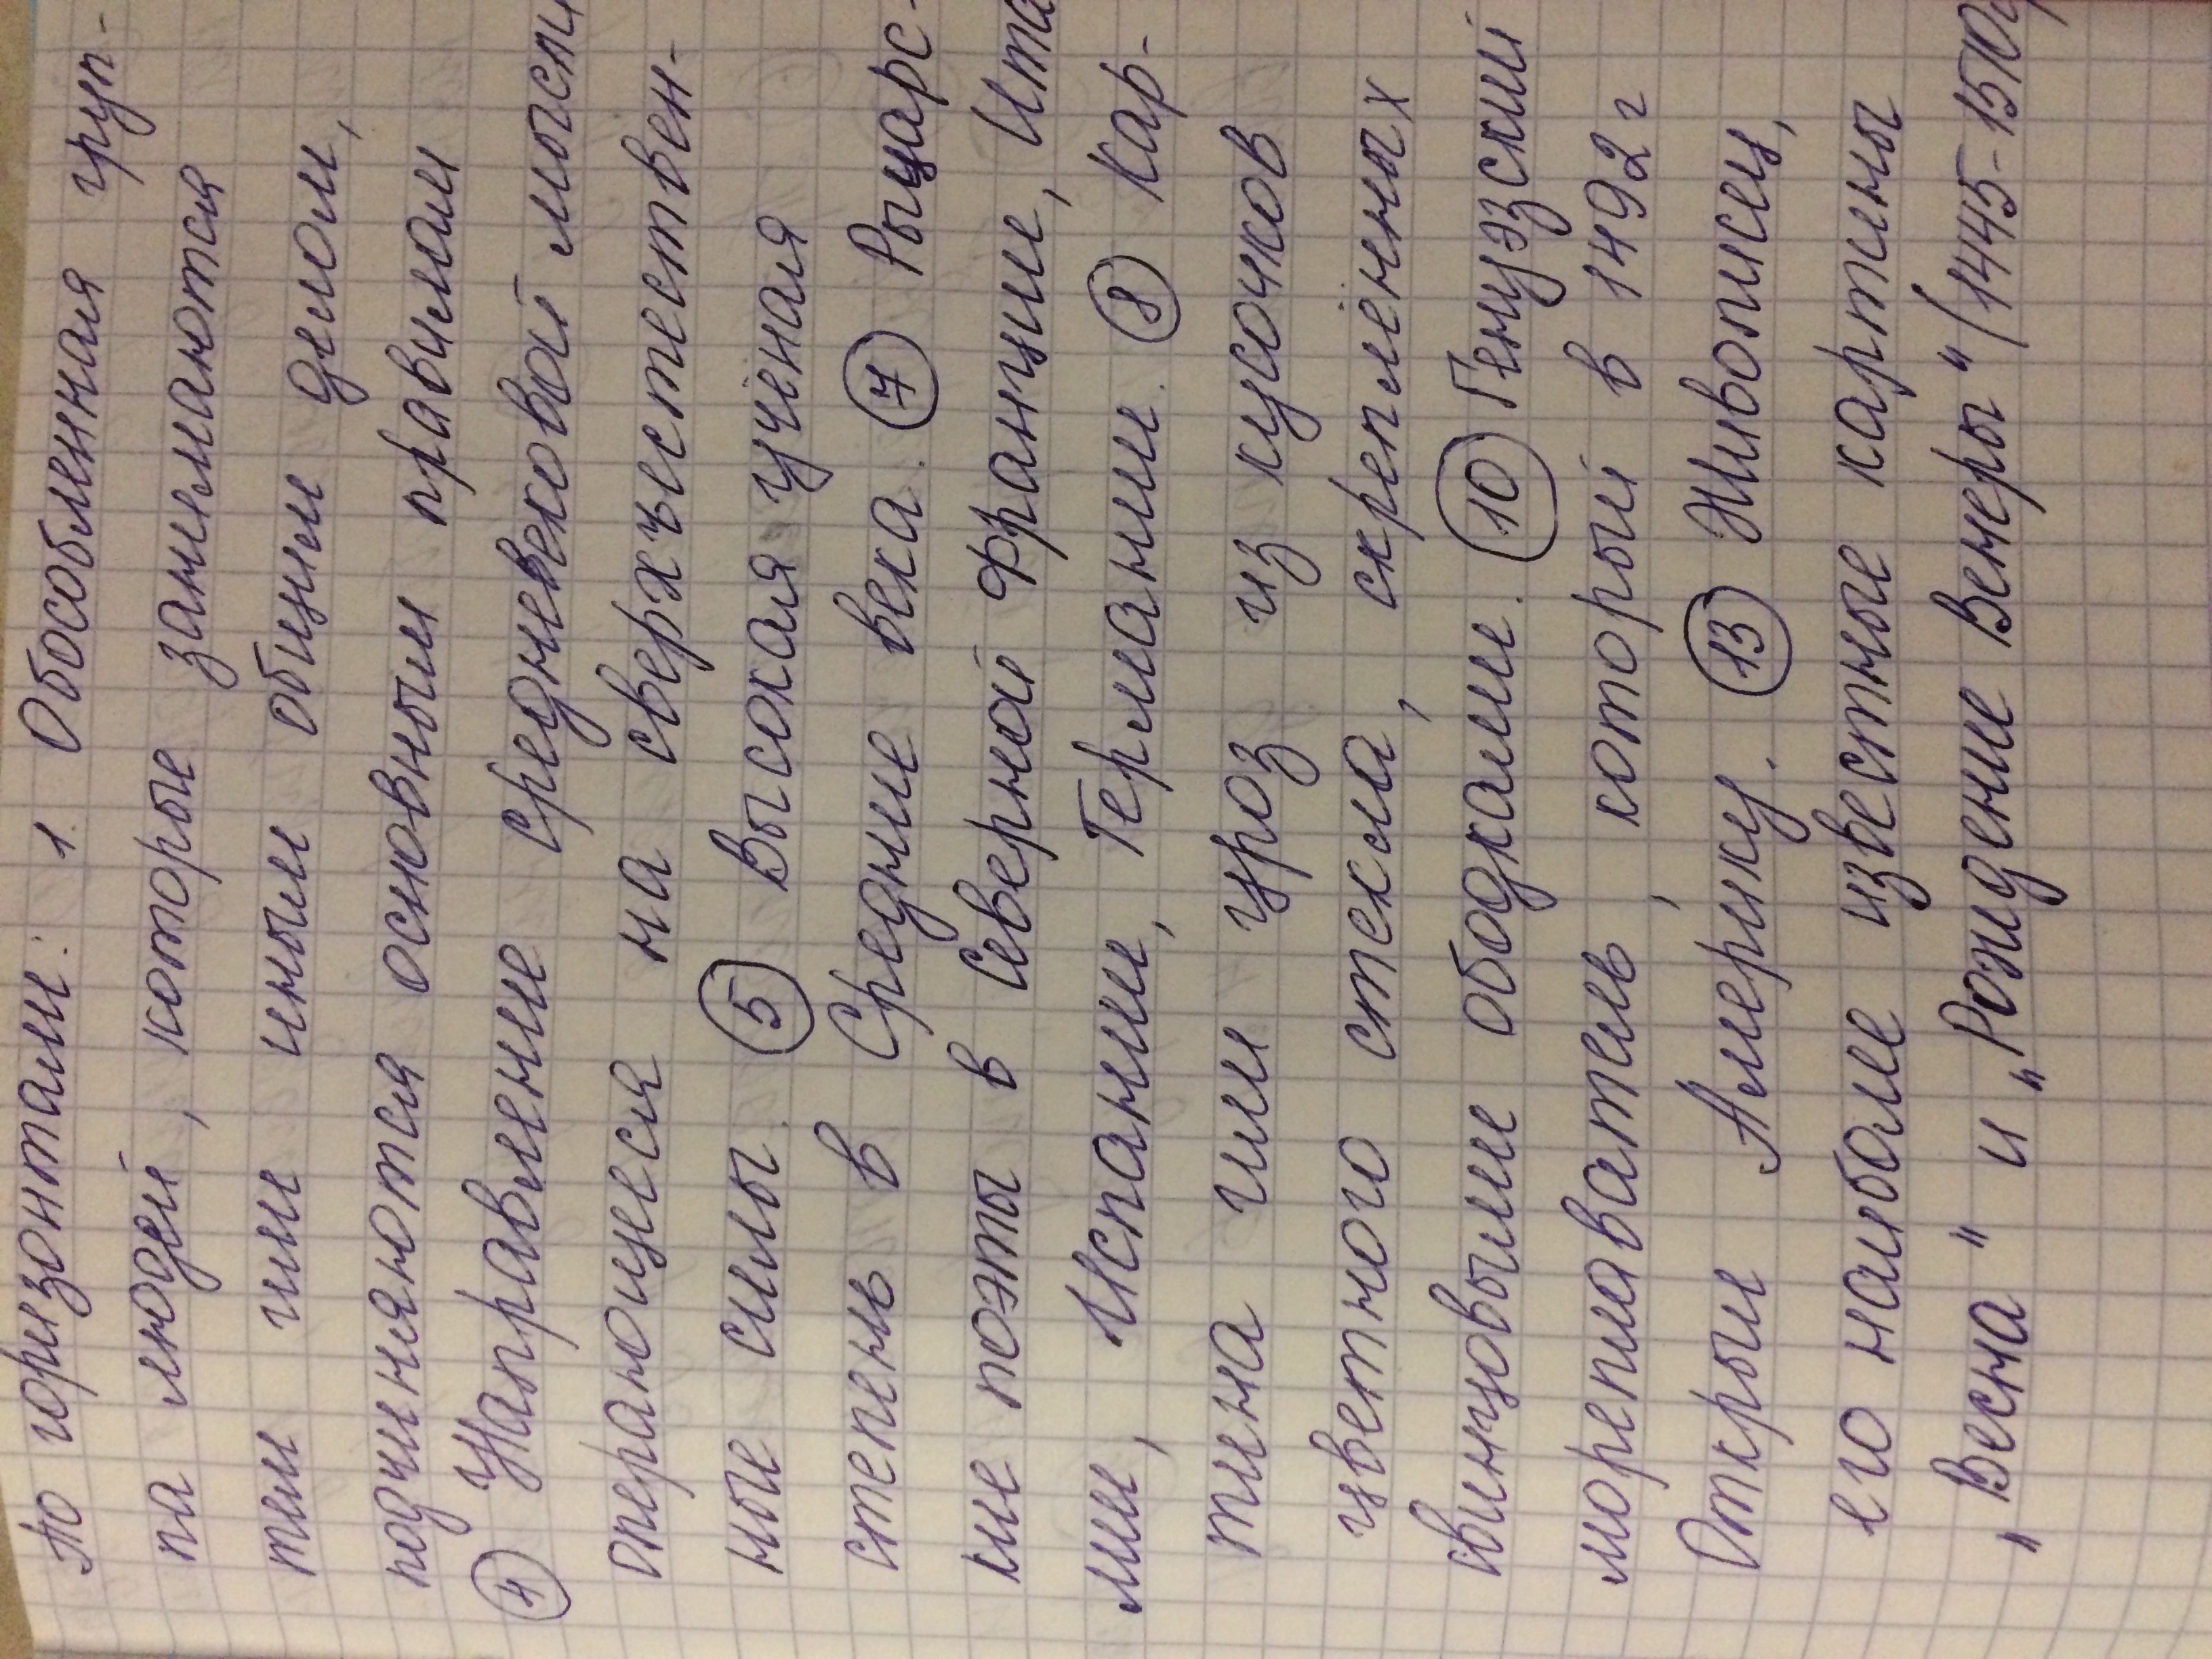 По горизонтали: 1. Обособленная груп-
па людей, которые занимаются
тем или иным общим делом,
подчиняются основным правилам
④ Направление средневековой мысли
опирающееся на сверхъестествен-
ные силы. ⑤ Высокая учёная
степень в Средние века. ⑦ Рыцарс-
кие поэты в Северной Франции, Ита
лии, Испании, Германии. ⑧ Кар-
тина или узор из кусочков
цветного стекла, скреплённых
свинцовыми ободками. ⑩ Генуэзский
мореплаватель, который в 1492 г
Открыл Америку. ⑬ Живописец,
его наиболее известные картины
„Весна" и „Рождение Венеры" (1445-1510г